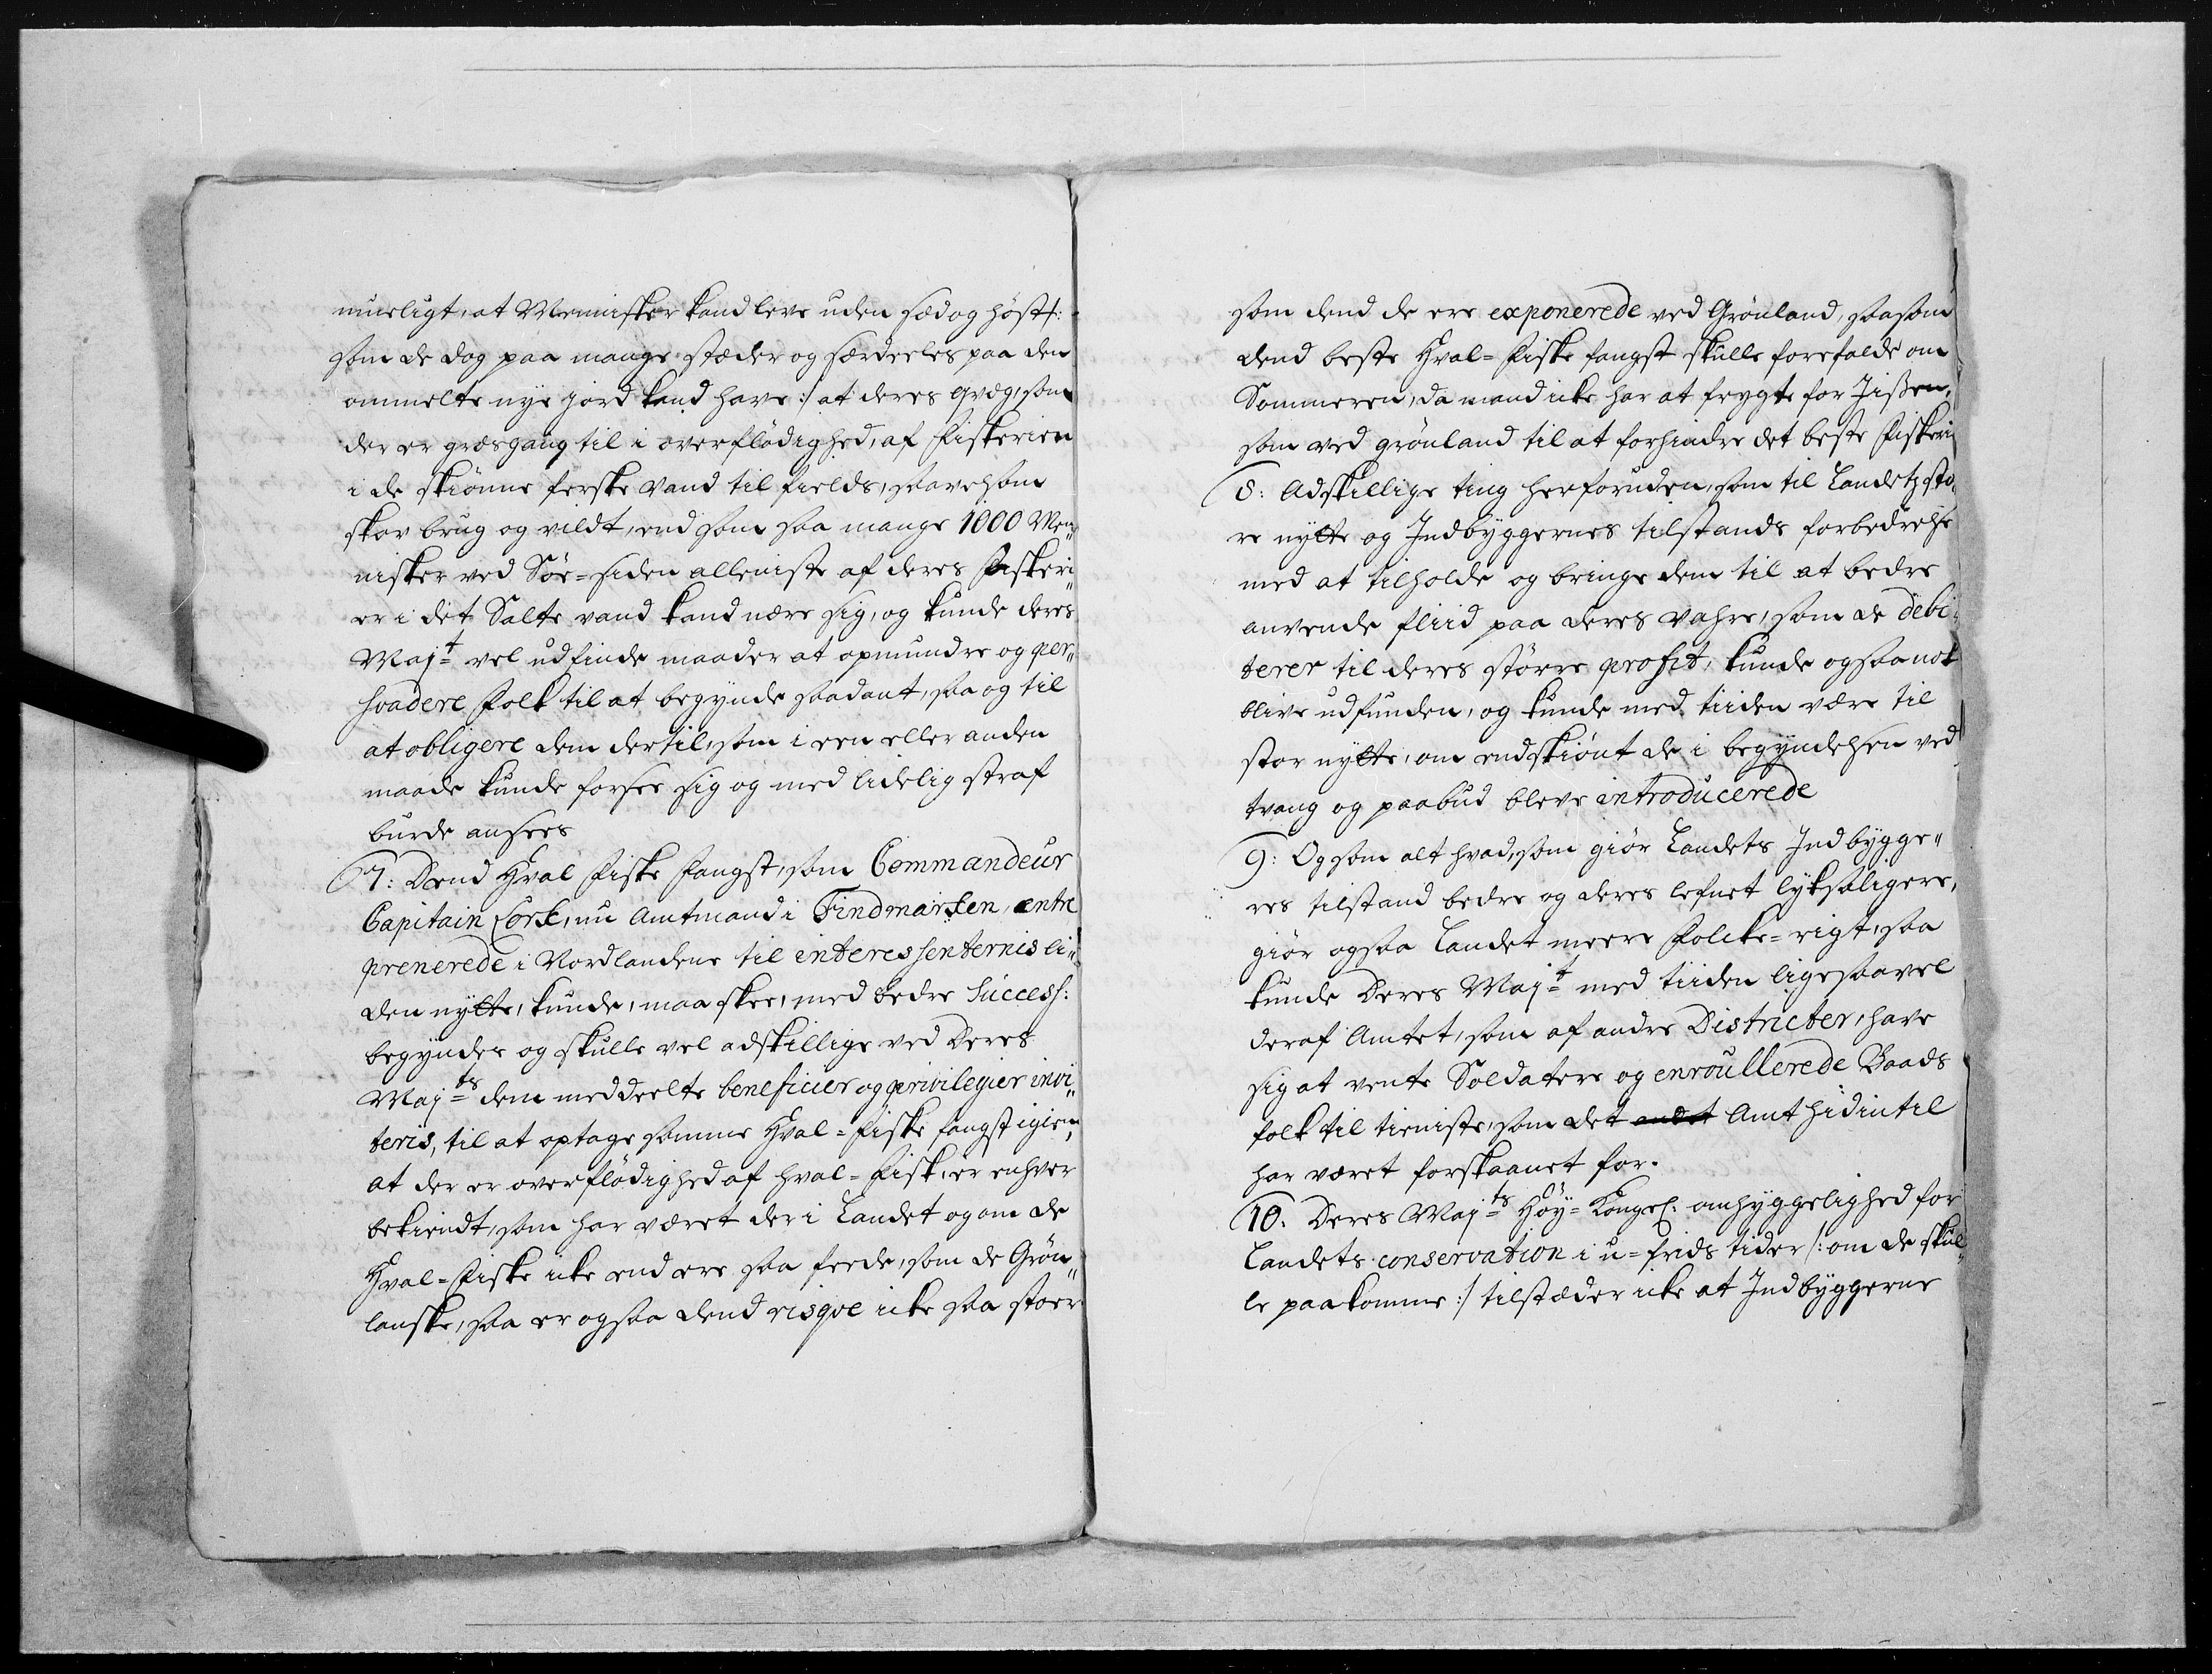 mueligt, at Mennisker kand leve uden sæd og höst /:
som de dog paa mange stæder og særdeeles paa den
ommelte nye jord kand have :/ at deres qvæg, som
der er græsgang til i overflödighed, af Fiskerien
i de skiönne ferske vand til fields, saavelsom
skov brug og vildt, end som saa mange 1000 Men„
nisker ved Söe=siden alleniste af deres Fiskeri„
er i det Salte vand kand nære sig, og kunde deres
Majt vel udfinde maader at opmundre og per„
svadere Folk til at begynde saadant, saa og til
at obligere dem dertil, som i een eller anden
maade kunde forsee sig og med lidelig straf
burde ansees
7: Dend Hval Fiske Fangst, som Commandeur
Capitain Lork, nu Amtmand i Findmarken, entre
prenerede i Nordlandene til interessenternis li„
den nytte, kunde, maa skee, med bedre Success:
begyndes og skulle vel adskillige ved Deres
Majts dem meddeelte beneficier og privilegier invi„
teris, til at optage samme Hval=Fiske fangst igien,
at der er overflödighed af Hval=Fisk, er enhver
bekiendt, som har været der i Landet og om de
Hval=Fiske icke end ere saa feede, som de Grön„
lanske, saa er ogsaa dend risqve icke saa stoer
som dend de ere exponerede ved Grönland, saasom
dend beste Hval=Fiske fangst skulle forefalde om
Sommeren, da mand icke har at frygte for Jissen,
som ved grönland til at forhindre det beste Fiskeri
8: Adskillige ting herforuden, som til Landetz stö„
re nytte og Indbyggernes tilstands forbedrelse
med at tilholde og bringe dem til at bedre
anvende fliid paa deres vahre, som de debi„
terer til deres större profit, kunde ogsaa nok
blive udfunden, og kunde med tiiden være til
stor nytte, om endskiönt de i begyndelsen ved
tvang og paabud bleve introducerede
9: Og som alt hvad, som giör Landets Indbygge„
res tilstand bedre og deres lefnet lyksaligere,
giör ogsaa Landet meere Folcke=rigt, saa
kunde Deres Majt med tiiden ligesaavel
deraf Amtet, som af andre Districter, have
sig at vente Soldatere og enroullerede Baads
folk til tieniste, som det andet Amt hidintil
har været forskaanet for.
10. Deres Majts Höy=Kongel: omhyggelighed for
Landets conservation i u=frids tider /: om de skul„
le paakomme :/ tilstæder icke at Indbyggerne